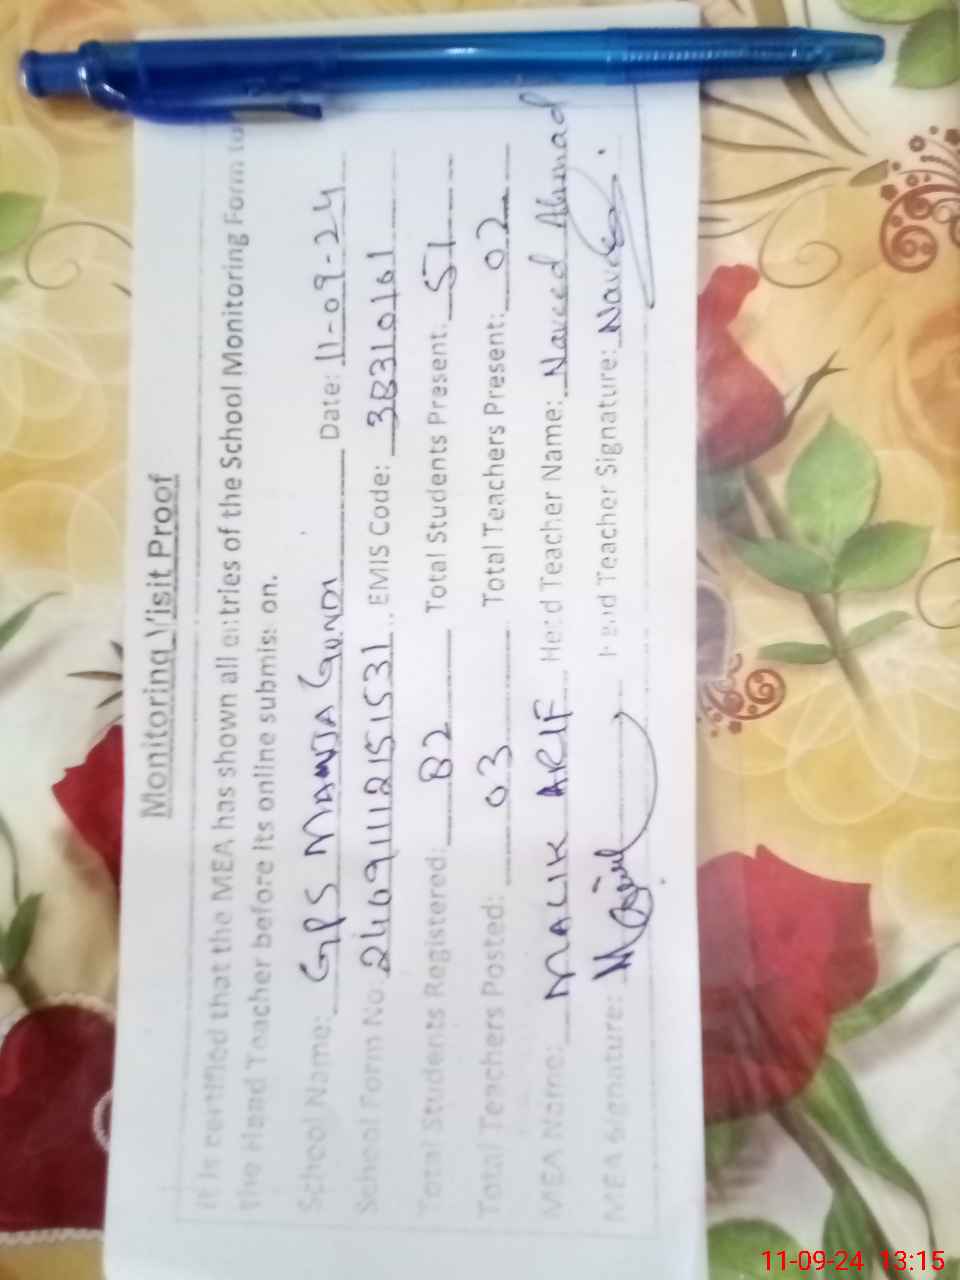 Monitoring Visit Proof
It is certified that the MEA has shown all entries of the School Monitoring Form to
the Head Teacher before its online submission.
School Name: GPS MANJA GUNDI Date: 11-09-24
School Form No: 24691112151531 EMIS Code: 38310161
Total Students Registered: 82 Total Students Present: 51
Total Teachers Posted: 03 Total Teachers Present: 02
MEA Name: MALIK ARIF Head Teacher Name: Naveed Ahmad
MEA Signature: Head Teacher Signature: Naveed
11-09-24 13:15